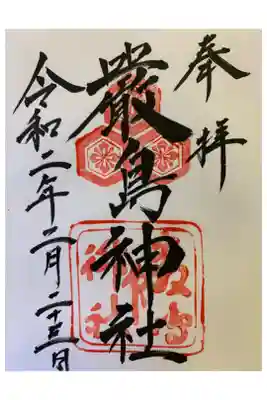 奉拝
厳島神社
令和二年二月二十三日